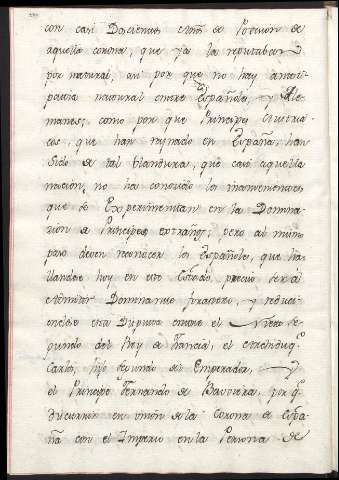 con casi Dascientos años de Posecion de
aquella corona, que ya la reputaban
por natural, asi por que no hay
patia natural entre Españoles, y Ale
manes; como por que Principes Austria
cos, que han reynado en España, han
sido de tal blandura, que casi aquella
nacion, no ha conocido los
que se Experimentan en la Domina
cion de Principes extrangs; pero al mismo
paso deven reconocer los Españoles, que ha
llandose hoy en este Estado, preciso será
el admitir Dominante forastero, y reduci
endose esta Disputa entre el Nieto Se
gundo del Rey de Francia, el Archiduq.
Carlos, hijo segundo del Emperador, y
el Principe Fernando de Baviera, por q.
discurrir en union de la Corona de Espa
ña con el Imperio en la Persona de